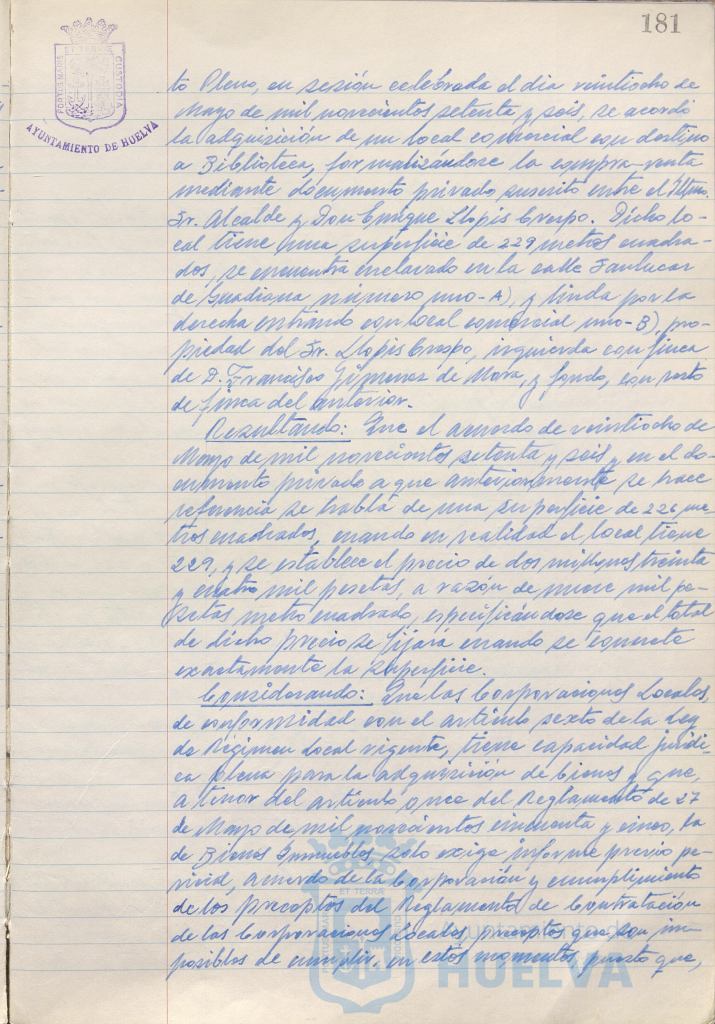 181
PORTUS MARIS ET TERRAE CUSTODIA
AYUNTAMIENTO DE HUELVA
to Pleno, en sesión celebrada el dia veintiocho de
Mayo de mil novecientos setenta y seis, se acordó
la adquisición de un local comercial con destino
a Biblioteca, formalizándose la compra-venta
mediante documento privado suscrito entre el Iltmo.
Sr. Alcalde y Don Enrique Llopis Crespo. Dicho lo-
cal tiene una superficie de 229 metros cuadra-
dos, se encuentra enclavado en la calle Sanlucar
de Guadiana número uno-A), y linda por la
derecha entrando con local comercial uno-B), pro-
piedad del Sr. Llopis Crespo, izquierda con finca
de D. Francisco Gimenez de Mora, y fondo, con resto
de finca del anterior.
Resultando: Que el acuerdo de veintiocho de
Mayo de mil novecientos setenta y seis y en el do-
cumento privado a que anteriormente se hace
referencia se habla de una superficie de 226 me-
tros cuadrados, cuando en realidad el local tiene
229, y se establece el precio de dos millones treinta
y cuatro mil pesetas, a razón de nueve mil pe-
setas metro cuadrado, especificándose que el total
de dicho precio se fijará cuando se concrete
exactamente la superficie.
Considerando: Que las Corporaciones Locales,
de conformidad con el articulo sexto de la Ley
de Régimen Local vigente, tiene capacidad juridi-
ca plena para la adquisición de bienes y que,
a tenor del articulo once del Reglamento de 27
de Mayo de mil novecientos cincuenta y cinco, la
de Bienes Inmuebles, solo exige informe previo pe-
ricial, acuerdo de la Corporación y cumplimiento
de los preceptos del Reglamento de Contratación
de las Corporaciones Locales, preceptos que son im-
posibles de cumplir, en estos momentos, puesto que,
ET TERRAE
Ayuntamiento de
HUELVA